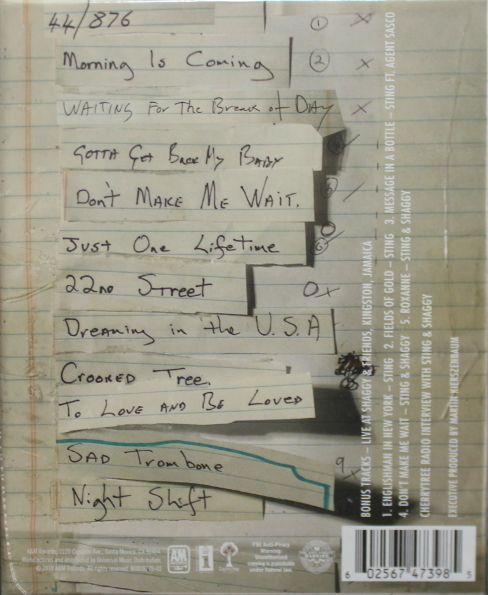 44/876 ① ×
Morning Is Coming ② ×
WAITING For The Break of DAY ×
GOTTA Get Back My BABY
Don't MAKE ME WAIT.
Just One Lifetime
22nd Street 0 ×
Dreaming in the U.S.A
CROOKED TREE.
TO LOVE AND BE LOVED
SAD Trombone 9 ×
Night Shift
BONUS TRACKS – LIVE AT SHAGGY & FRIENDS, KINGSTON, JAMAICA
1. ENGLISHMAN IN NEW YORK – STING 2. FIELDS OF GOLD – STING 3. MESSAGE IN A BOTTLE – STING FT. AGENT SASCO
4. DON'T MAKE ME WAIT – STING & SHAGGY 5. ROXANNE – STING & SHAGGY
CHERRYTREE RADIO INTERVIEW WITH STING & SHAGGY
EXECUTIVE PRODUCED BY MARTIN KIERSZENBAUM
A&M
FBI Anti-Piracy
Warning:
6 02567 47398 5